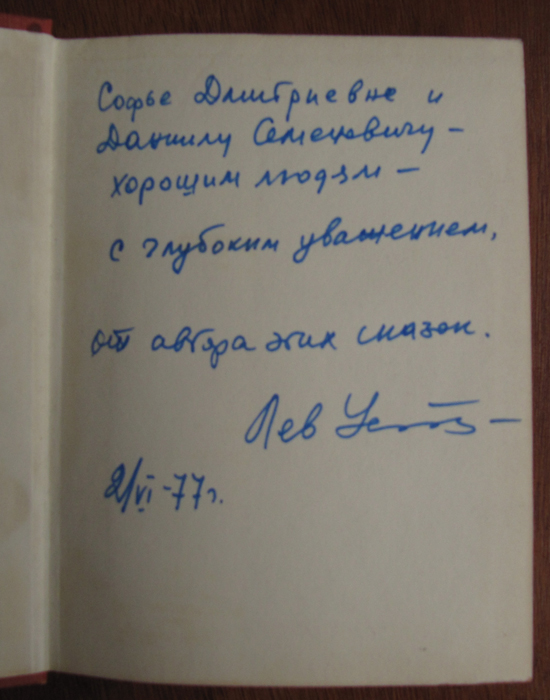 Софье Дмитриевне и
Даниилу Семеновичу –
хорошим людям –
с глубоким уважением,
от автора этих сказок.
Лев
2/VI-77г.